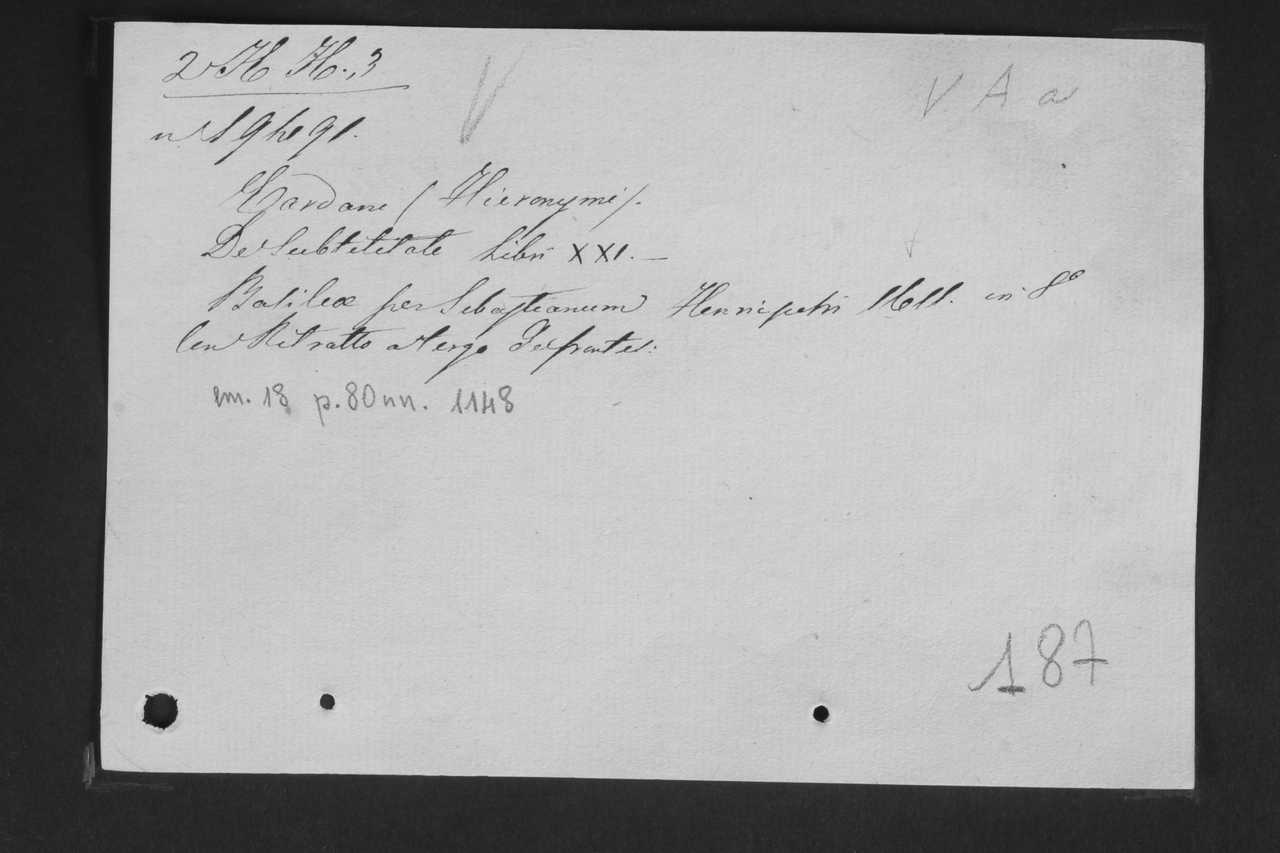 2 H H. 3
V
V A a
Cardani (Hieronymi).
De Subtilitate Libri XXI. —
Basileæ per Sebastianum Henricpetri 1611. in 8º
Con Ritratto a tergo del frontes:
cm. 18 p. 80 nn. 1148
187